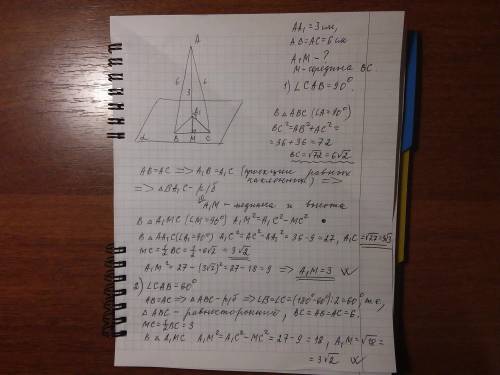 AA₁ = 3 см,
AB = AC = 6 см
A₁M - ?
M - середина BC.
1) ∠CAB = 90°.
A
6
6
3
A₁
B
M
C
α
В △ ABC (∠A = 90°)
BC² = AB² + AC² =
= 36 + 36 = 72
BC = √72 = 6√2
AB = AC => A₁B = A₁C (проекции равных
наклонных) =>
=> △BA₁C - р/б
A₁M - медиана и высота
В △ A₁MC (∠M = 90°) A₁M² = A₁C² - MC²
В △ AA₁C (∠A₁ = 90°) A₁C² = AC² - AA₁² = 36 - 9 = 27, A₁C = √27 = 3√3
MC = ½ BC = ½ · 6√2 = 3√2
A₁M² = 27 - (3√2)² = 27 - 18 = 9 => A₁M = 3
2) ∠CAB = 60°
AB = AC => △ABC - р/б => ∠B = ∠C = (180° - 60°) : 2 = 60°, т.е.,
△ ABC - равносторонний, BC = AB = AC = 6.
MC = ½ BC = 3
В △ A₁MC A₁M² = A₁C² - MC² = 27 - 9 = 18, A₁M = √18 =
= 3√2